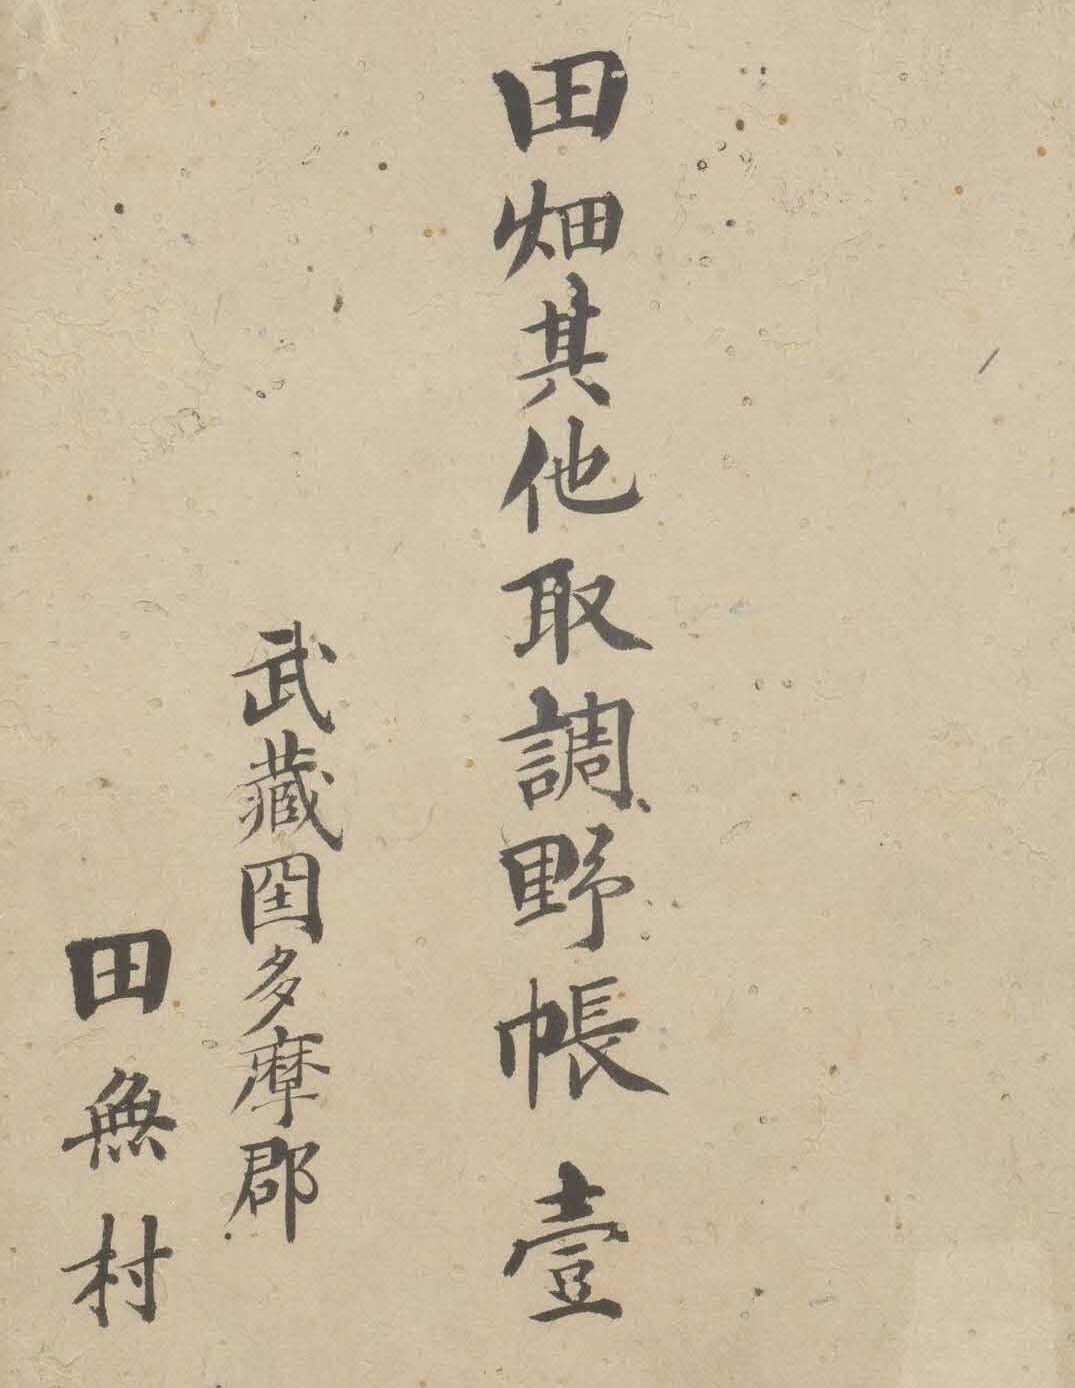 田畑其他取調野帳 壹
武藏囯多摩郡
田無村